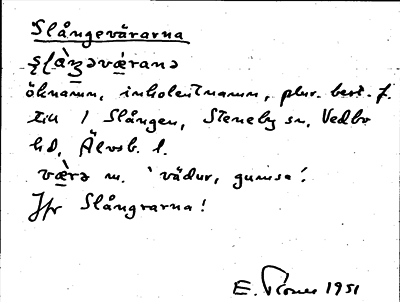 Slångevärarna
şlàŋəvæ̀ranə
öknamn, inbolentnamn, plur. best. f.
till / Slången, Steneby sn, Vedbo
hd, Älvsb. l.
væ̀rə m. 'vädur, gumse'.
Jfr Slångrarna!
E. 1951